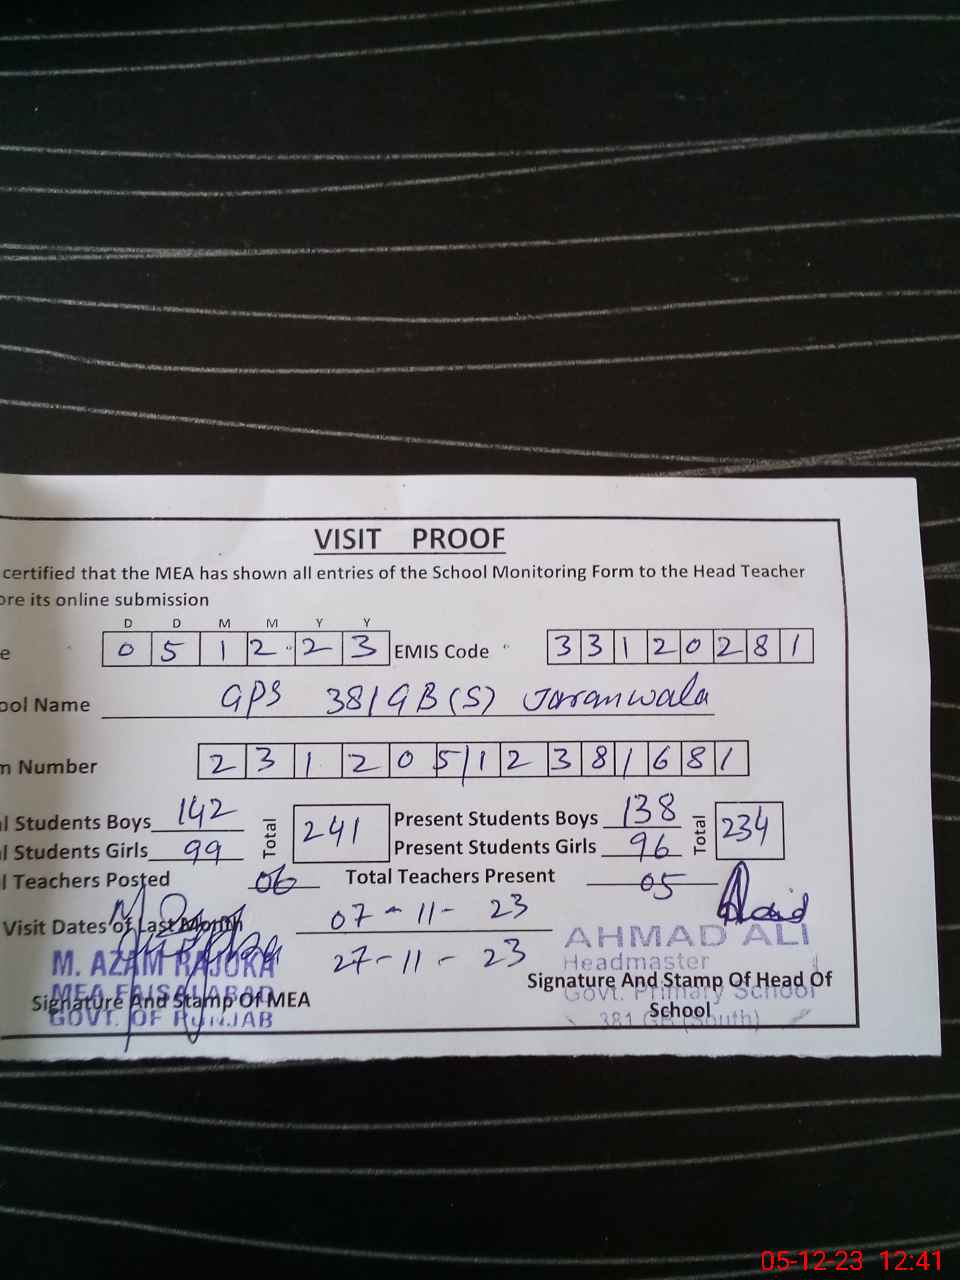 VISIT PROOF
certified that the MEA has shown all entries of the School Monitoring Form to the Head Teacher
ore its online submission
D D M M Y Y
e 0 5 1 2 2 3 EMIS Code 3 3 1 2 0 2 8 1
ool Name GPS 381 GB (S) Jaranwala
m Number 2 3 1 2 0 5 1 2 3 8 1 6 8 1
l Students Boys 142 Total 241 Present Students Boys 138 Total 234
l Students Girls 99 Present Students Girls 96
l Teachers Posted 06 Total Teachers Present 05
Visit Dates of Last Month 07-11-23
27-11-23
M. AZAM RAJOKA
MEA FAISALABAD
GOVT. OF PUNJAB
Signature And Stamp Of MEA
AHMAD ALI
Headmaster
Govt. Primary School
381 GB (South)
Signature And Stamp Of Head Of
School
05-12-23 12:41